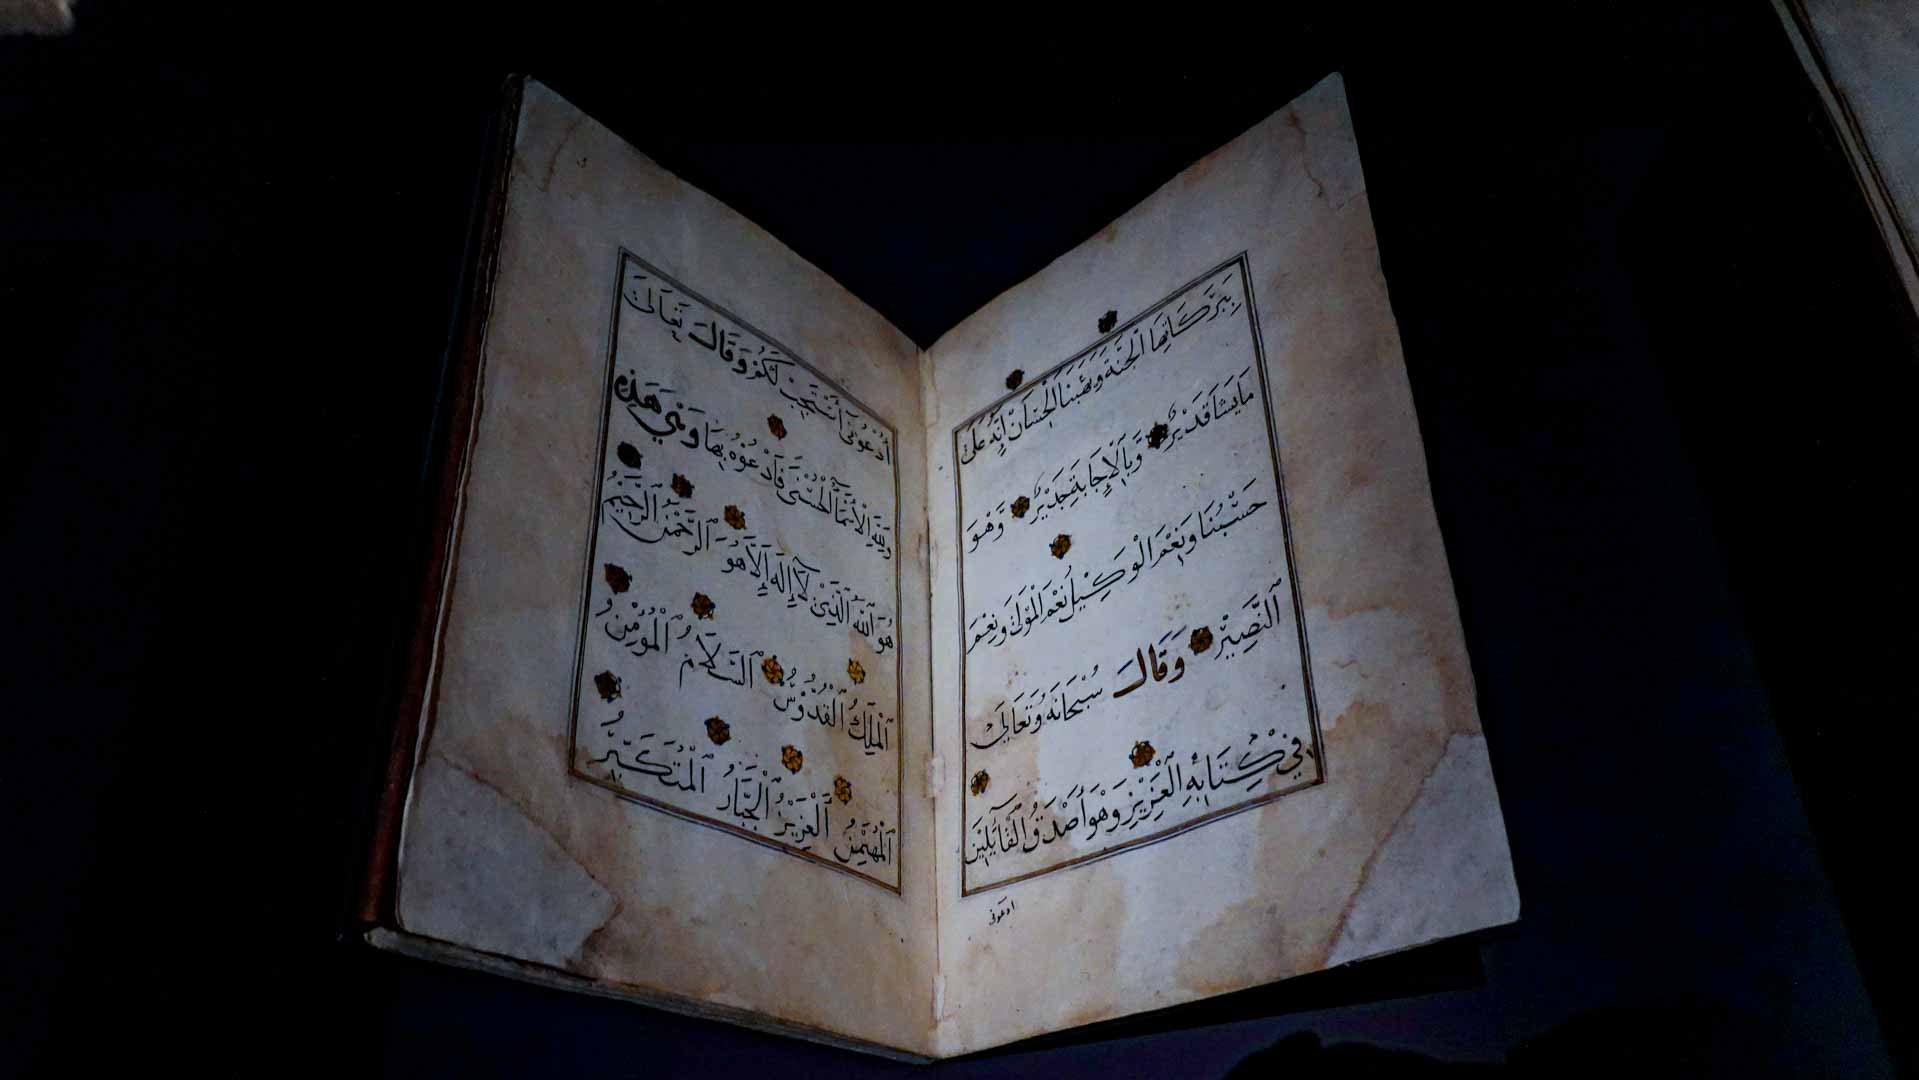 بِبَرَكَاتِهَا الْجَنَّةَ وَنَعِيمَهَا الْحِسَانَ إِنَّهُ عَلَىٰ
مَا يَشَا قَدِيْرٌ وَّبِالْإِجَابَةِ جَدِيْرٌ وَّهْوَ
حَسْبُنَا وَنِعْمَ الْوَكِيْلُ نِعْمَ الْمَوْلَىٰ وَنِعْمَ
ٱلنَّصِيْرُ وَقَالَ سُبْحَانَهُ وَتَعَالَىٰ
فِيْ كِتَابِهِ الْعَزِيْزِ وَهْوَ أَصْدَقُ الْقَآئِلِيْنَ
ادعونی
اُدْعُوْنِيْ أَسْتَجِبْ لَكُمْ وَقَالَ تَعَالَىٰ
وَلِلَّهِ الْأَسْمَآءُ الْحُسْنَىٰ فَادْعُوْهُ بِهَا وَهْيَ هَذِهِ
هُوَ ٱللَّهُ الَّذِيْ لَآ إِلَهَ إِلَّا هُوَ ٱلرَّحْمَنُ ٱلرَّحِيْمُ
ٱلْمَلِكُ ٱلْقُدُّوْسُ ٱلسَّلَامُ ٱلْمُؤْمِنُ
ٱلْمُهَيْمِنُ ٱلْعَزِيْزُ ٱلْجَبَّارُ ٱلْمُتَكَبِّرُ